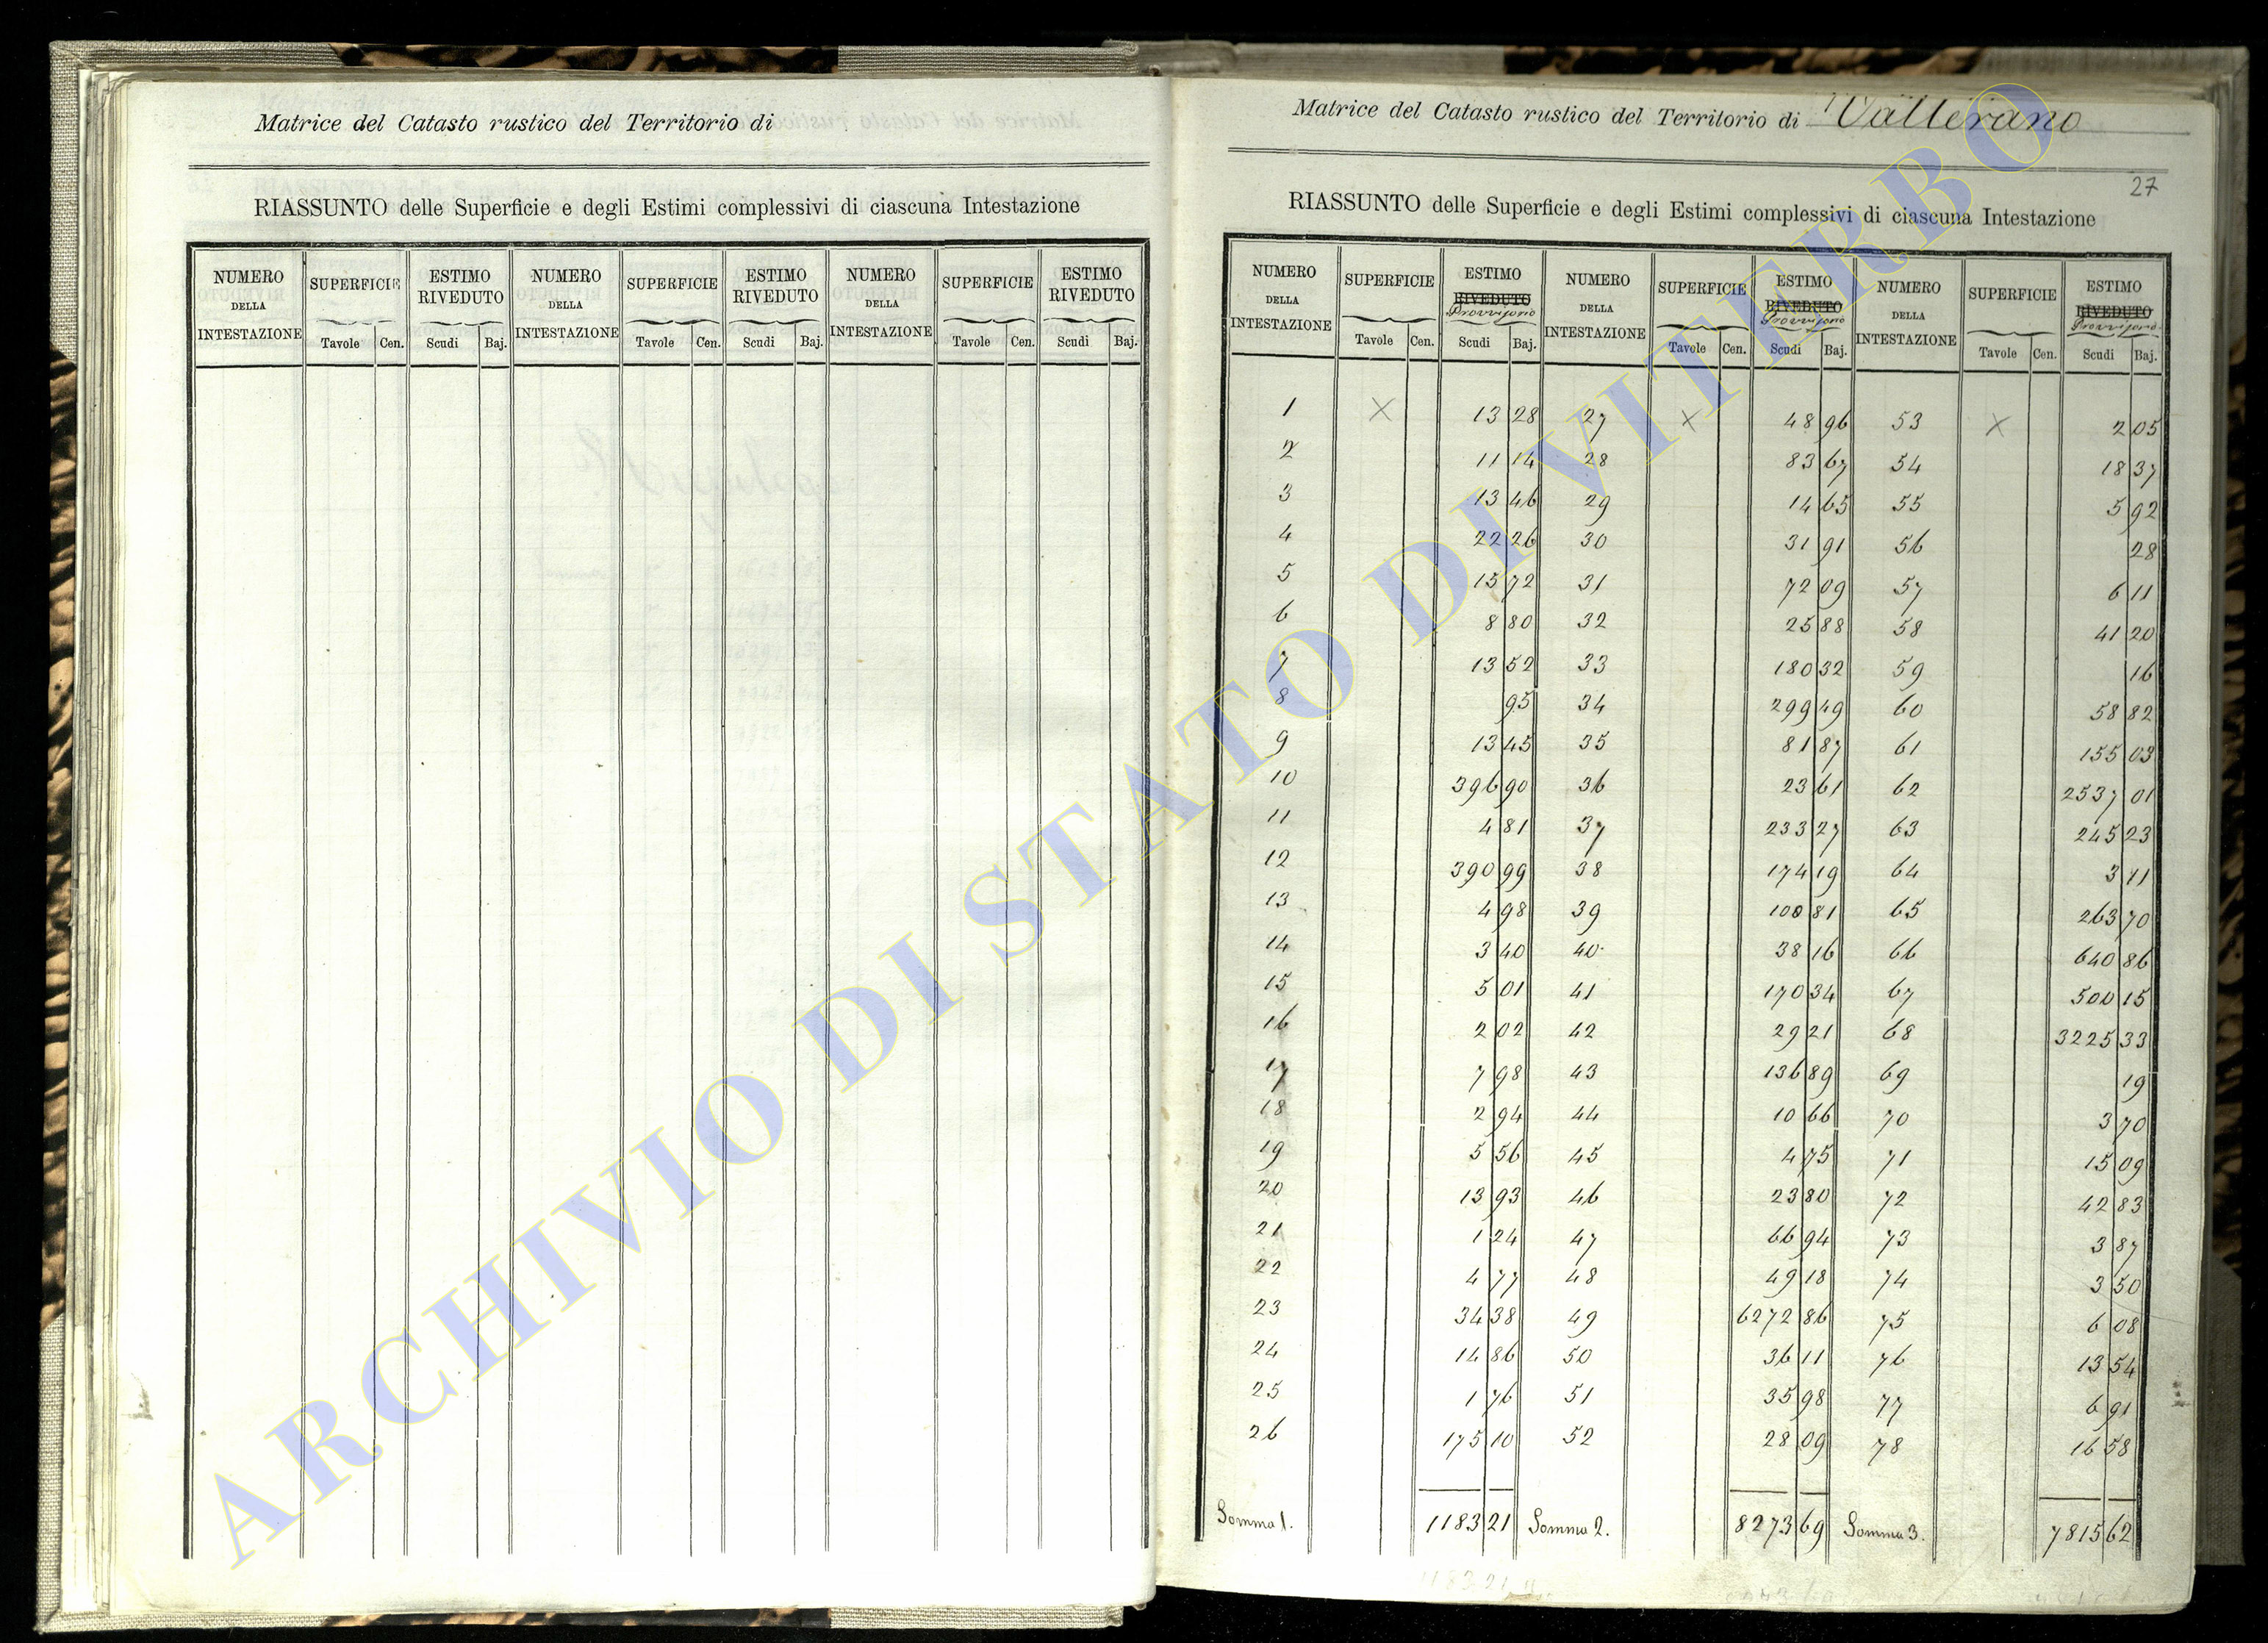 Matrice del Catasto rustico del Territorio di
RIASSUNTO delle Superficie e degli Estimi complessivi di ciascuna Intestazione
NUMERO DELLA INTESTAZIONE SUPERFICIE ESTIMO RIVEDUTO NUMERO DELLA INTESTAZIONE SUPERFICIE ESTIMO RIVEDUTO NUMERO DELLA INTESTAZIONE SUPERFICIE ESTIMO RIVEDUTO
Tavole Cen. Scudi Baj. Tavole Cen. Scudi Baj. Tavole Cen. Scudi Baj.
Matrice del Catasto rustico del Territorio di Vallerano
27
RIASSUNTO delle Superficie e degli Estimi complessivi di ciascuna Intestazione
NUMERO DELLA INTESTAZIONE SUPERFICIE ESTIMO RIVEDUTO Provvisorio NUMERO DELLA INTESTAZIONE SUPERFICIE ESTIMO RIVEDUTO Provvisorio NUMERO DELLA INTESTAZIONE SUPERFICIE ESTIMO RIVEDUTO Provvisorio
Tavole Cen. Scudi Baj. Tavole Cen. Scudi Baj. Tavole Cen. Scudi Baj.
1 X 13 28 27 X 48 96 53 X 2 05
2 11 14 28 83 67 54 18 37
3 13 46 29 14 65 55 5 92
4 22 26 30 31 91 56 28
5 15 72 31 72 09 57 6 11
6 8 80 32 25 88 58 41 20
7 13 52 33 180 32 59 16
8 95 34 299 49 60 58 82
9 13 45 35 81 87 61 155 03
10 396 90 36 23 61 62 2537 01
11 4 81 37 233 27 63 245 23
12 390 99 38 174 19 64 3 11
13 4 98 39 100 81 65 263 70
14 3 40 40 38 16 66 640 86
15 5 01 41 170 34 67 500 15
16 2 02 42 29 21 68 3225 33
17 7 98 43 136 89 69 19
18 2 94 44 10 66 70 3 70
19 5 56 45 4 75 71 15 09
20 13 93 46 23 80 72 42 83
21 1 24 47 66 94 73 3 87
22 4 77 48 49 18 74 3 50
23 34 38 49 6272 86 75 6 08
24 14 86 50 36 11 76 13 54
25 1 76 51 35 98 77 6 91
26 175 10 52 28 09 78 16 58
Somma 1. 1183 21 Somma 2. 8273 69 Somma 3. 7815 62
ARCHIVIO DI STATO DI VITERBO